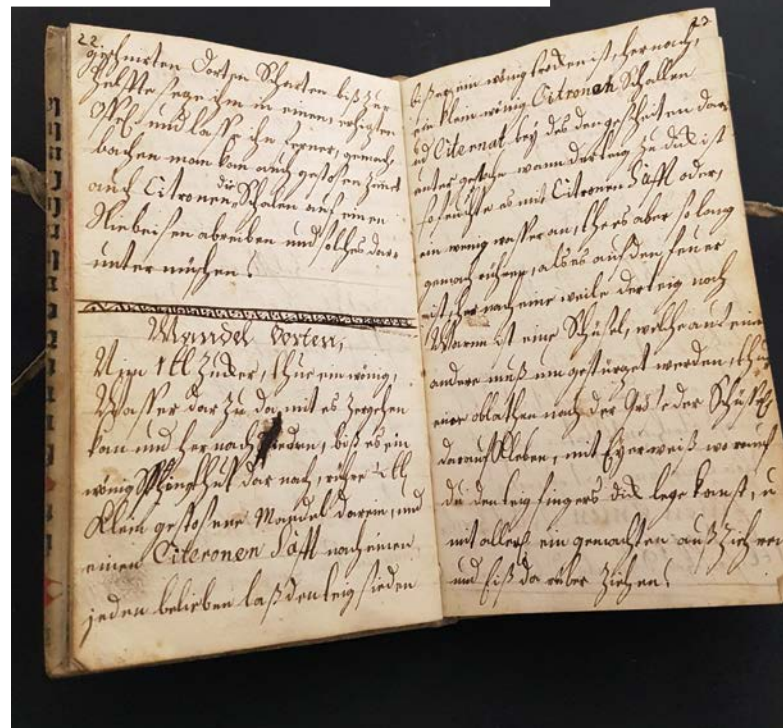 22.
geschmirten Dorten Scharten biß zur
Helffte seze ihn in einen, erhizten
Offen und lasse ihn ferner, gemach,
bachen man kan auch gestosen Zimet
auch Citronen, die Schalen auf einen
Riebeisen abreiben und solches dar-
unter mischen!
Mandel Dorten,
Nim 1 ℔ Zucker, thue ein wenig,
Wasser dar zu da, mit es zergehen
kan und her nach sieden, biß es ein
wenig dar nach, rühre ℔
Klein gestosene Mandel darein, und
einen Citeronem Säfft nach einen
jeden belieben laß den teig sieden
23
biß er ein wenig trocken ist, her nach,
ein klein wenig Citronen Schallen
und Citernat bey des den geschniten dar
unter gethan wann der teig zu dick ist
so feuchte es mit Citronen Säfft oder,
ein wenig wasser an, thue es aber so lang
gemach rühren, als es auf den feuer
ist, her nach eine weile der teig noch
Warm ist eine Schüsel, welche auf eine
andere muß um gestürzet werden, thue
eine oblathen nach der Gröse der Schüsel
darauf Kleben, mit Eyerweiß worauf
du den teig fingers dick lege kanst, u
mit allerley ein gemachten auß Zieh ren
und Eiß da rüber Ziehen!